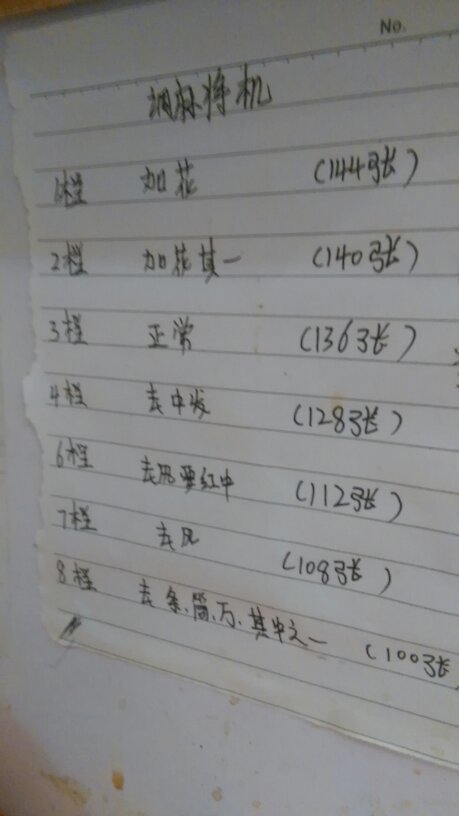 No.
调麻将机
1档 加花 (144张)
2档 加花其一 (140张)
3档 正常 (136张)
4档 去中发 (128张)
6档 去风要红中 (112张)
7档 去风 (108张)
8档 去条、筒、万、其中之一 (100张